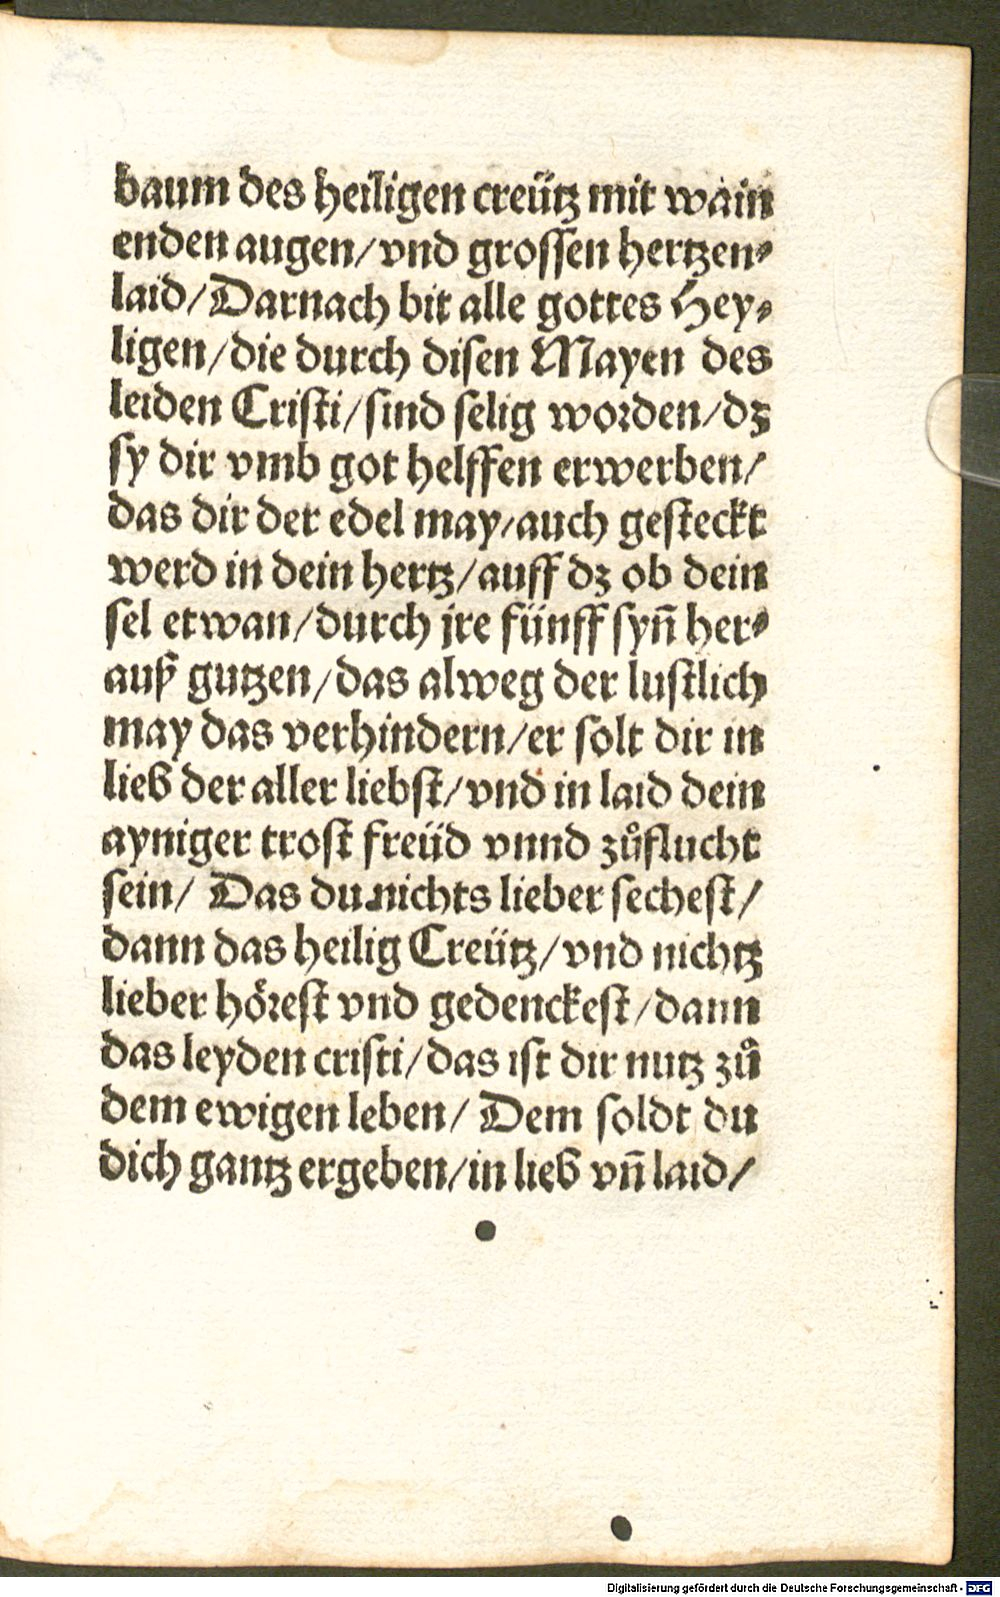 baum des heiligen creütz mit wain
enden augen/vnd grossen hertzen⸗
laid/Darnach bit alle gottes Hey⸗
ligen/die durch disen Mayen des
leiden Cristi/sind selig worden/dz
sy dir vmb got helffen erwerben/
das dir der edel may/auch gesteckt
werd in dein hertz/auff dz ob dein
sel etwan/durch jre fünff syn̄ her⸗
auß gutzen/das alweg der lustlich
may das verhindern/er solt dir in
lieb der aller liebst/vnd in laid dein
ayniger trost freüd vnnd zůflucht
sein/ Das du nichts lieber sechest/
dann das heilig Creütz/vnd nichtz
lieber hoͤrest vnd gedenckest/dann
das leyden cristi/das ist dir nutz zů
dem ewigen leben/ Dem soldt du
dich gantz ergeben/in lieb vn̄ laid/
Digitalisierung gefördert durch die Deutsche Forschungsgemeinschaft - DFG